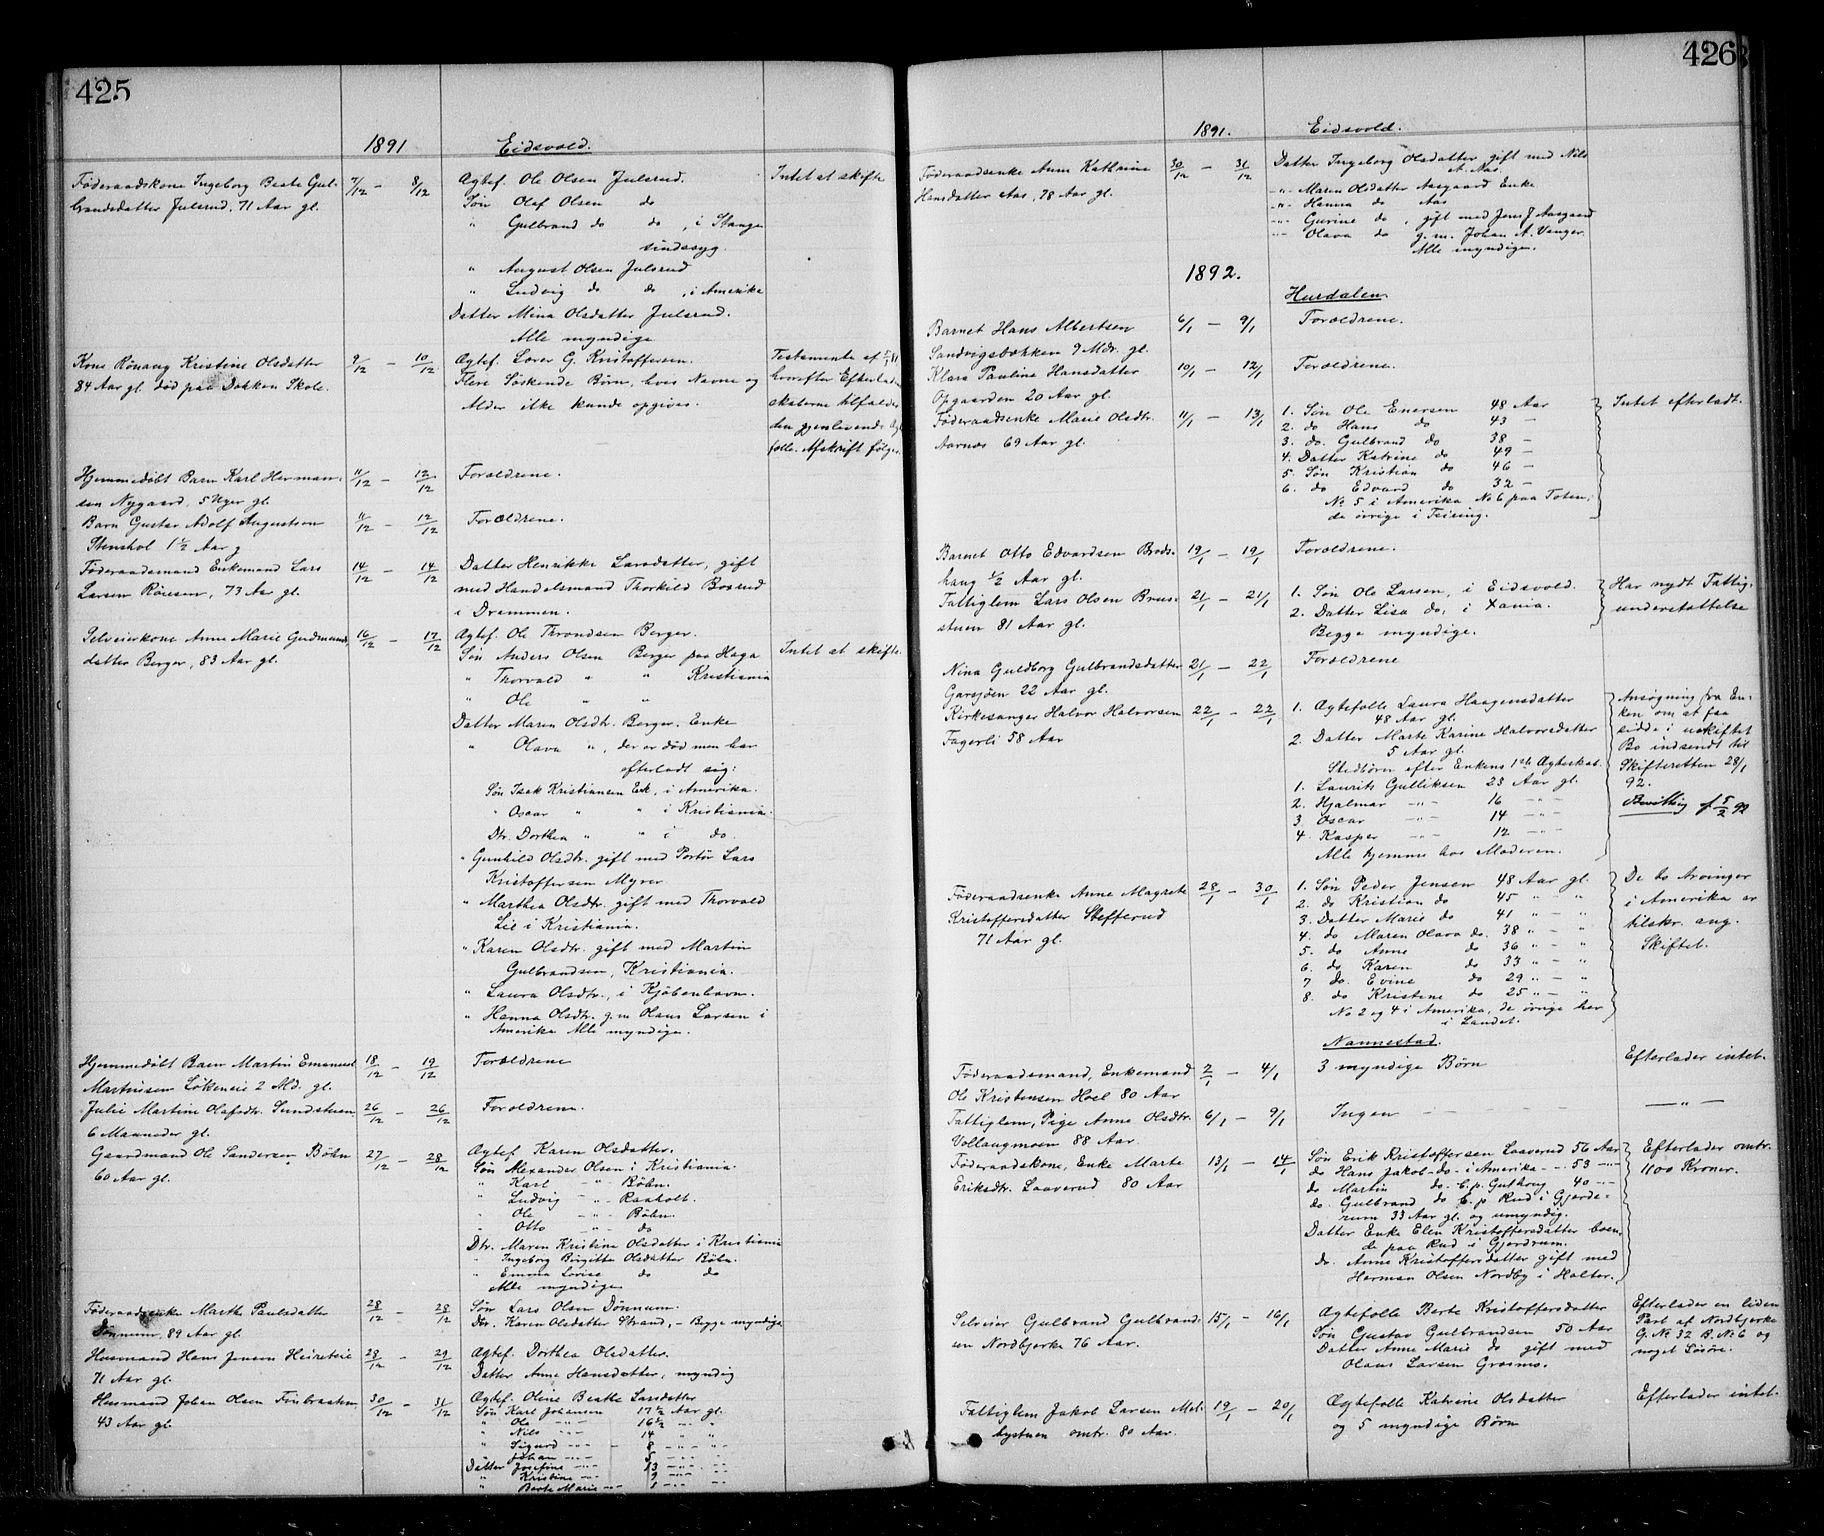 425
1891
Eidsvold.
Føderaadskone Ingeborg Beate Gul- 7/12 — 8/12 Ægtef. Ole Olsen Julsrud. Intet at skifte
brandsdatter Julsrud, 71 Aar gl. Søn Olaf Olsen do
" Gulbrand do do, i Stange
sindssyg
" August Olsen Julsrud
" Ludvig do do, i Amerika
Datter Mina Olsdatter Julsrud.
Alle myndige
Kone Rønaug Kristine Olsdatter 9/12 — 10/12 Ægtef. Lorer G. Kristoffersen. Testamente af
84 Aar gl. død paa Dokken Skole. Flere Søskende Børn, hvis Navne og hvorefter Efterladen-
Alder ikke kunde opgives. skaberne tilfalder
den gjenlevende Ægte-
folle. Afskrift følger.
Hjemmedøbt Barn Karl Herman- 11/12 — 12/12 Forældrene.
sen Nygaard, 5 Uger gl.
Barn Gustav Adolf Augustsen 11/12 — 12/12 Forældrene.
Stenshol 1½ Aar g
Føderaadsmand Enkemand Lars 14/12 — 14/12 Datter Henrikke Larsdatter, gift
Larsen Røisen, 73 Aar gl. med Handelsmand Thorkild Bogrud
i Drammen.
Selveierkone Anne Marie Gudmunds- 16/12 — 17/12 Ægtef. Ole Throndsen Berger.
datter Berger, 83 Aar gl. Søn Anders Olsen Berger paa Haga Intet at skifte.
" Thorvald " " Kristiania
" Ole " "
Datter Maren Olsdtr. Berger. Enke
" Olava ", der er død men har
efterladt sig:
Søn Isak Kristiansen Eek, i Amerika.
" Oscar " " i Kristiania.
Dtr. Dorthea " " i do.
" Gunhild Olsdtr. gift med Portør Lars
Kristoffersen Myrer.
" Marthea Olsdtr. gift med Thorvald
Lie i Kristiania.
" Karen Olsdtr. gift med Martin
Gulbrandsen, Kristiania.
" Laura Olsdtr., i Kjøbenhavn.
" Hanna Olsdtr. g.m Olaus Larsen i
Amerika Alle myndige.
Hjemmedøbt Barn Martin Emanuel 18/12 — 19/12 Forældrene
Martinsen Løkeneie 2 Md. gl.
Julie Martine Olafsdtr. Sundstuen 26/12 — 26/12 Forældrene.
6 Maaneder gl.
Gaardmand Ole Sandersen Bøhn 27/12 — 28/12 Ægtef Karen Olsdatter.
60 Aar gl. Søn Alexander Olsen i Kristiania.
" Karl -"- Bøhn.
" Ludvig -"- Raaholt.
" Ole -"- Bøhn.
" Otto -"- do
Dtr. Maren Kristine Olsdatter i Kristiania
" Ingeborg Birgitte Olsdatter Bøhn.
" Emma Lovise do do
Alle myndige
Føderaadsenke Marthe Paulsdatter 28/12 — 28/12 Søn Lars Olsen Dønnum.
Dønnum, 89 Aar gl. Dtr. Karen Olsdatter Strand, – Begge myndige
Husmand Hans Jensen Heireteie 28/12 — 29/12 Ægtef. Dorthea Olsdatter.
71 Aar gl. Datter Anne Hansdatter, myndig
Husmand Johan Olsen Finbraaten 30/12 — 31/12 Ægtef. Oline Beathe Larsdatter
43 Aar gl. Søn Karl Johansen 17½ Aar gl.
" Ole -"- 16½ -"- "
" Nils -"- 14 " "
" Sigurd -"- 8 -"- "
" Johan -"- 5 -"-
Datter Josefine -"- 13 -"-
" Kristine -"- 9 -"-
" Berte Marie -"- 1 -"-
426
1891.
Eidsvold.
Føderaadsenke Anne Kathrine 30/12 — 31/12 Datter Ingeborg Olsdatter gift med Nils
A. Aas.
Hansdatter Aas, 78 Aar gl. -"- Maren Olsdatter Aasgaard Enke
-"- Hanna do Aas
-"- Gurine do, gift med Jens J. Aasgaard
-"- Olava do g.m. Johan A. Vanger
Alle myndige.
1892.
Hurdalen.
Barnet Hans Albertsen 6/1 — 9/1 Forældrene.
Sandvigsbakken 9 Mdr. gl.
Klara Pauline Hansdatter 10/1 — 12/1 Forældrene.
Opgaarden 20 Aar gl.
Føderaadsenke Marie Olsdtr. 11/1 — 13/1 1. Søn Ole Enersen 48 Aar Intet efterladt.
Aarnæs 69 Aar gl. 2. do Hans do 43 —
3. do. Gulbrand do 38 —
4. Datter Katrine do 49 —
5. Søn Kristian do 46 —
6. do Edvard do 32 —
No 5 i Amerika No 6 paa Toten,
de øvrige i Feiring.
Barnet Otto Edvardsen Brods- 19/1 — 19/1 Forældrene.
haug ½ Aar gl.
Fattiglem Lars Olsen Brus- 21/1 — 21/1 1. Søn Ole Larsen, i Eidsvold. Har nydt Fattig-
stuen 81 Aar gl. 2. Datter Lisa do, i Xania. understøttelse
Begge myndige.
Nina Guldborg Gulbrandsdatter 21/1 — 22/1 Forældrene
Garsjøen 22 Aar gl.
Kirkesanger Halvor Halvorsen 22/1 — 22/1 1. Ægtefolle Laura Haagensdatter Ansøgning fra En-
48 Aar gl. ken om at faa
Fagerli 58 Aar 2. Datter Marte Karine Halvorsdatter sidde i uskiftet
5 Aar gl. Bo indsendt til
Stedbørn efter Enkens 1ste Ægteskab. Skifteretten 28/1
1. Laurits Gulliksen 23 Aar gl. 92.
2. Hjalmar -"- 16 -"- Bevilling f 5/2 92
3. Oscar -"- 14 -"-
4. Kasper -"- 12 -"-
Alle hjemme hos Moderen.
Føderaadsenke Anne Magrete 28/1 — 30/1 1. Søn Peder Jensen 48 Aar gl. De to Arvinger
Kristoffersdatter Stefferud 2. do Kristian do 45 " " i Amerika er
71 Aar gl. 3. Datter Marie do 41 " — " tilskr. ang.
4. do Maren Olava do. 38 " — " Skiftet.
5. do Anne do 36 " — "
6. do Karen do 33 " — "
7 do. Evine do 29 " — "
8. do Kristine do 25 " — "
No 2 og 4 i Amerika, de øvrige her
i Landet.
Nannestad.
Føderaadsmand, Enkemand 2/1 — 4/1 3 myndige Børn Efterlader intet.
Ole Kristensen Hoel 80 Aar
Fattiglem, Pige Anne Olsdtr. 6/1 — 9/1 Ingen — " —
Vollaugmoen 88 Aar.
Føderaadskone, Enke Marte 13/1 — 14/1 Søn Erik Kristoffersen Laaverud 56 Aar Efterlader omtr.
Eriksdtr. Laaverud 80 Aar do Hans Jakob -do- i Amerika -"- 53 -"- 1100 Kroner.
do Martin do. E. p. Gulhaug 40 -"-
do. Gulbrand do E. p Rud i Gjerde-
rum 33 Aar gl. og umyndig.
Datter Enke Elen Kristoffersdatter boen-
de paa Rud i Gjerdrum.
do. Anne Kristoffersdatter gift med
Herman Olsen Nordby i Holter.
Selveier Gulbrand Gulbrand- 15/1 — 16/1 Ægtefolle Berte Kristoffersdatter Efterlader en liden
sen Nordbjerke 76 Aar. Søn Gustav Gulbrandsen 50 Aar Part af Nordbjerke
Datter Anne Marie do gift med G. No 32 B. No 6 og
Olaus Larsen Grasmo. noget Løsøre.
Fattiglem Jakob Larsen Mel- 19/1 — 20/1 Ægtefolle Katrine Olsdatter Efterlader intet.
bystuen omtr. 80 Aar. og 5 myndige Børn